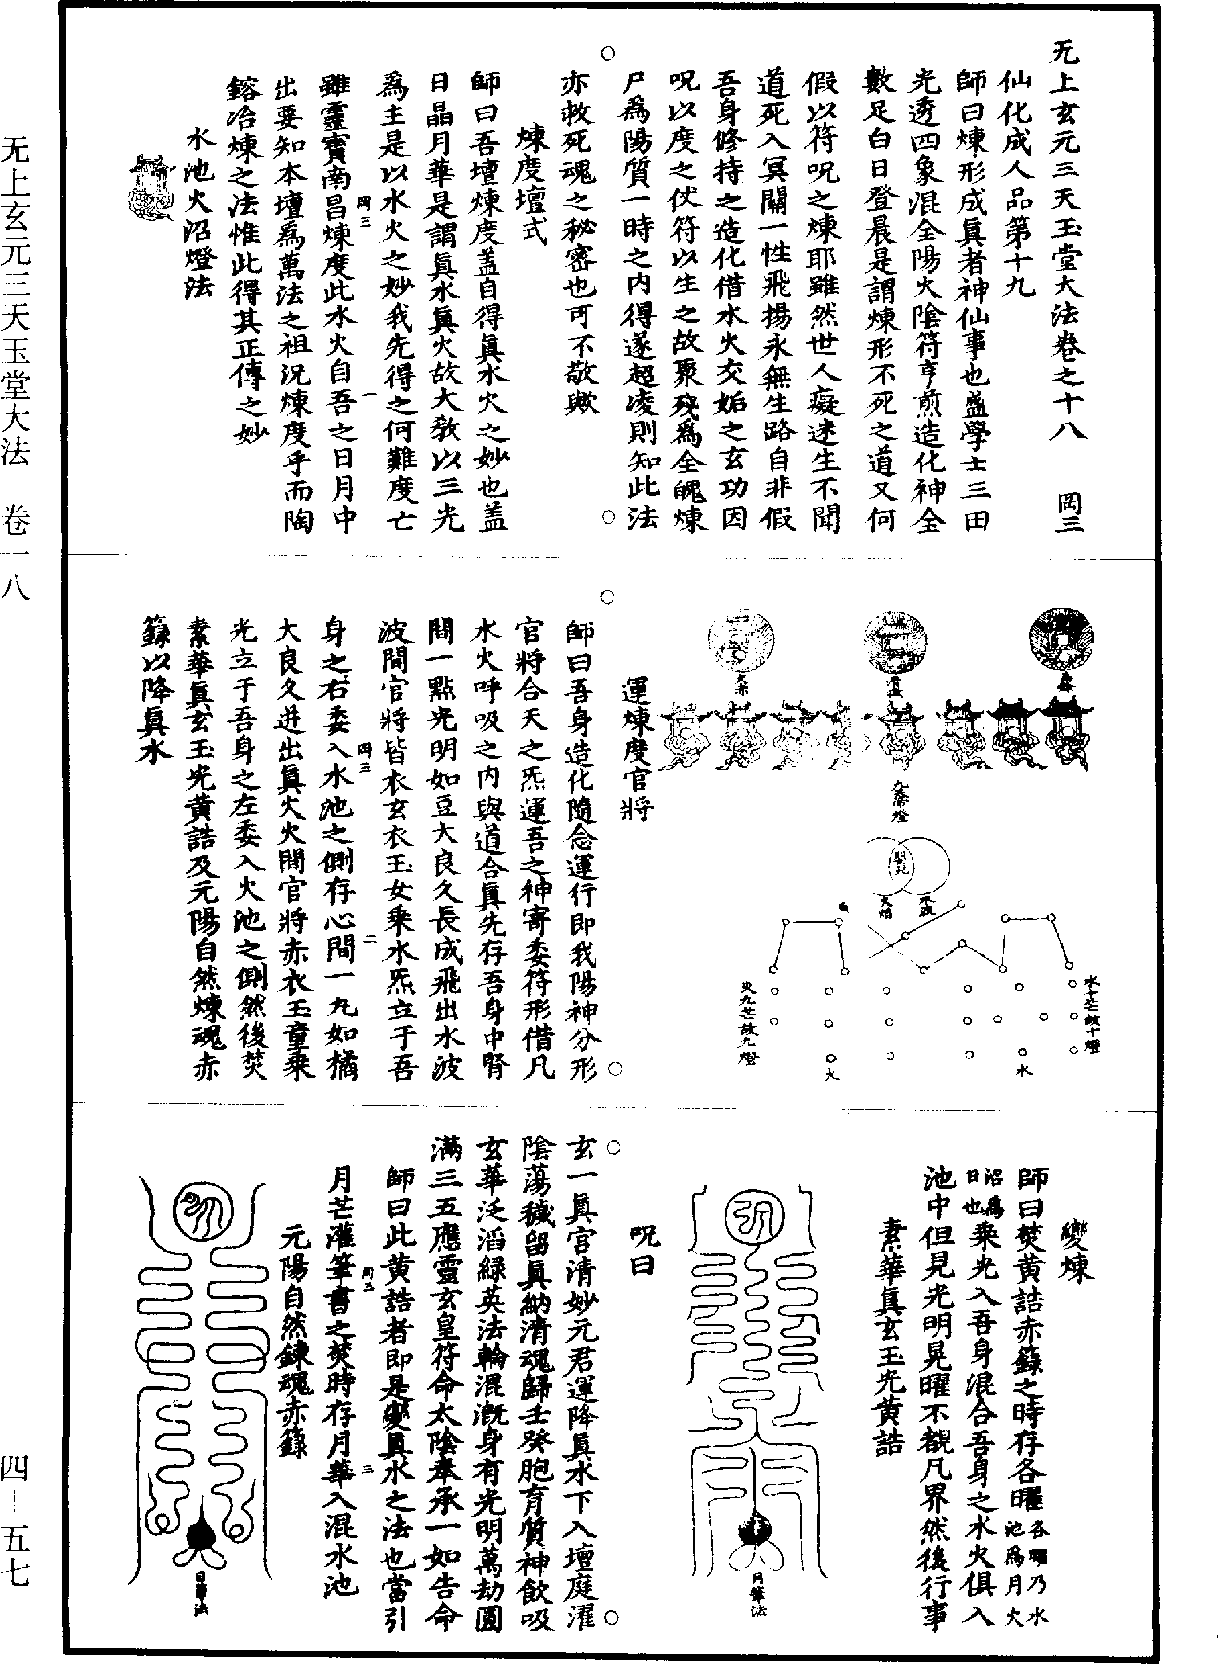 无上玄元三天玉堂大法卷之十八　岡三
仙化成人品第十九
師曰煉形成真者神仙事也蓋學士三田
光透四象混全陽火陰符亨煎造化神全
數足白日登晨是謂煉形不死之道又何
假以符呪之煉耶雖然世人癡迷生不聞
道死入冥關一性飛揚永無生路自非假
吾身修持之造化借水火交姤之玄功因
呪以度之仗符以生之故聚殘為全魄煉
尸為陽質一時之內得遂超凌則知此法
亦救死魂之秘密也可不敬歟
煉度壇式
師曰吾壇煉度蓋自得真水火之妙也蓋
日晶月華是謂真水真火故大教以三光
為主是以水火之妙我先得之何難度亡
岡三　一
雖靈寶南昌煉度此水火自吾之日月中
出要知本壇為萬法之祖況煉度乎而陶
鎔冶煉之法惟此得其正傳之妙
水池火沼燈法
九際燈
水波
火焰
水十芒故十燈
火九芒故九燈
水
火
運煉度官將
師曰吾身造化隨念運行即我陽神分形
官將合天之炁運吾之神寄委符形借凡
水火呼吸之內與道合真先存吾身中腎
間一點光明如豆大良久長成飛出水波
波間官將皆衣玄衣玉女乘水炁立于吾
岡三　二
身之右委入水池之側存心間一丸如橘
大良久迸出真火火間官將赤衣玉童乘
光立于吾身之左委入火池之側然後焚
素華真玄玉光黃誥及元陽自然煉魂赤
籙以降真水
變煉
師曰焚黃誥赤籙之時存各曜各曜乃水池為月火
沼為日也乘光入吾身混合吾身之水火俱入
池中但見光明晃曜不覩凡界然後行事
素華真玄玉光黃誥
月筆法
呪曰
玄一真官清妙元君運降真水下入壇庭濯
陰蕩穢留真納清魂歸壬癸胞育質神飲吸
玄華泛滔綠英法輪混溉身有光明萬劫圓
滿三五應靈玄皇符命太陰奉承一如告命
師曰此黃誥者即是變真水之法也當引
岡三　三
月芒灌筆書之焚時存月華入混水池
元陽自然鍊魂赤籙
日筆法
无上玄元三天玉堂大法　卷一八
四—五七